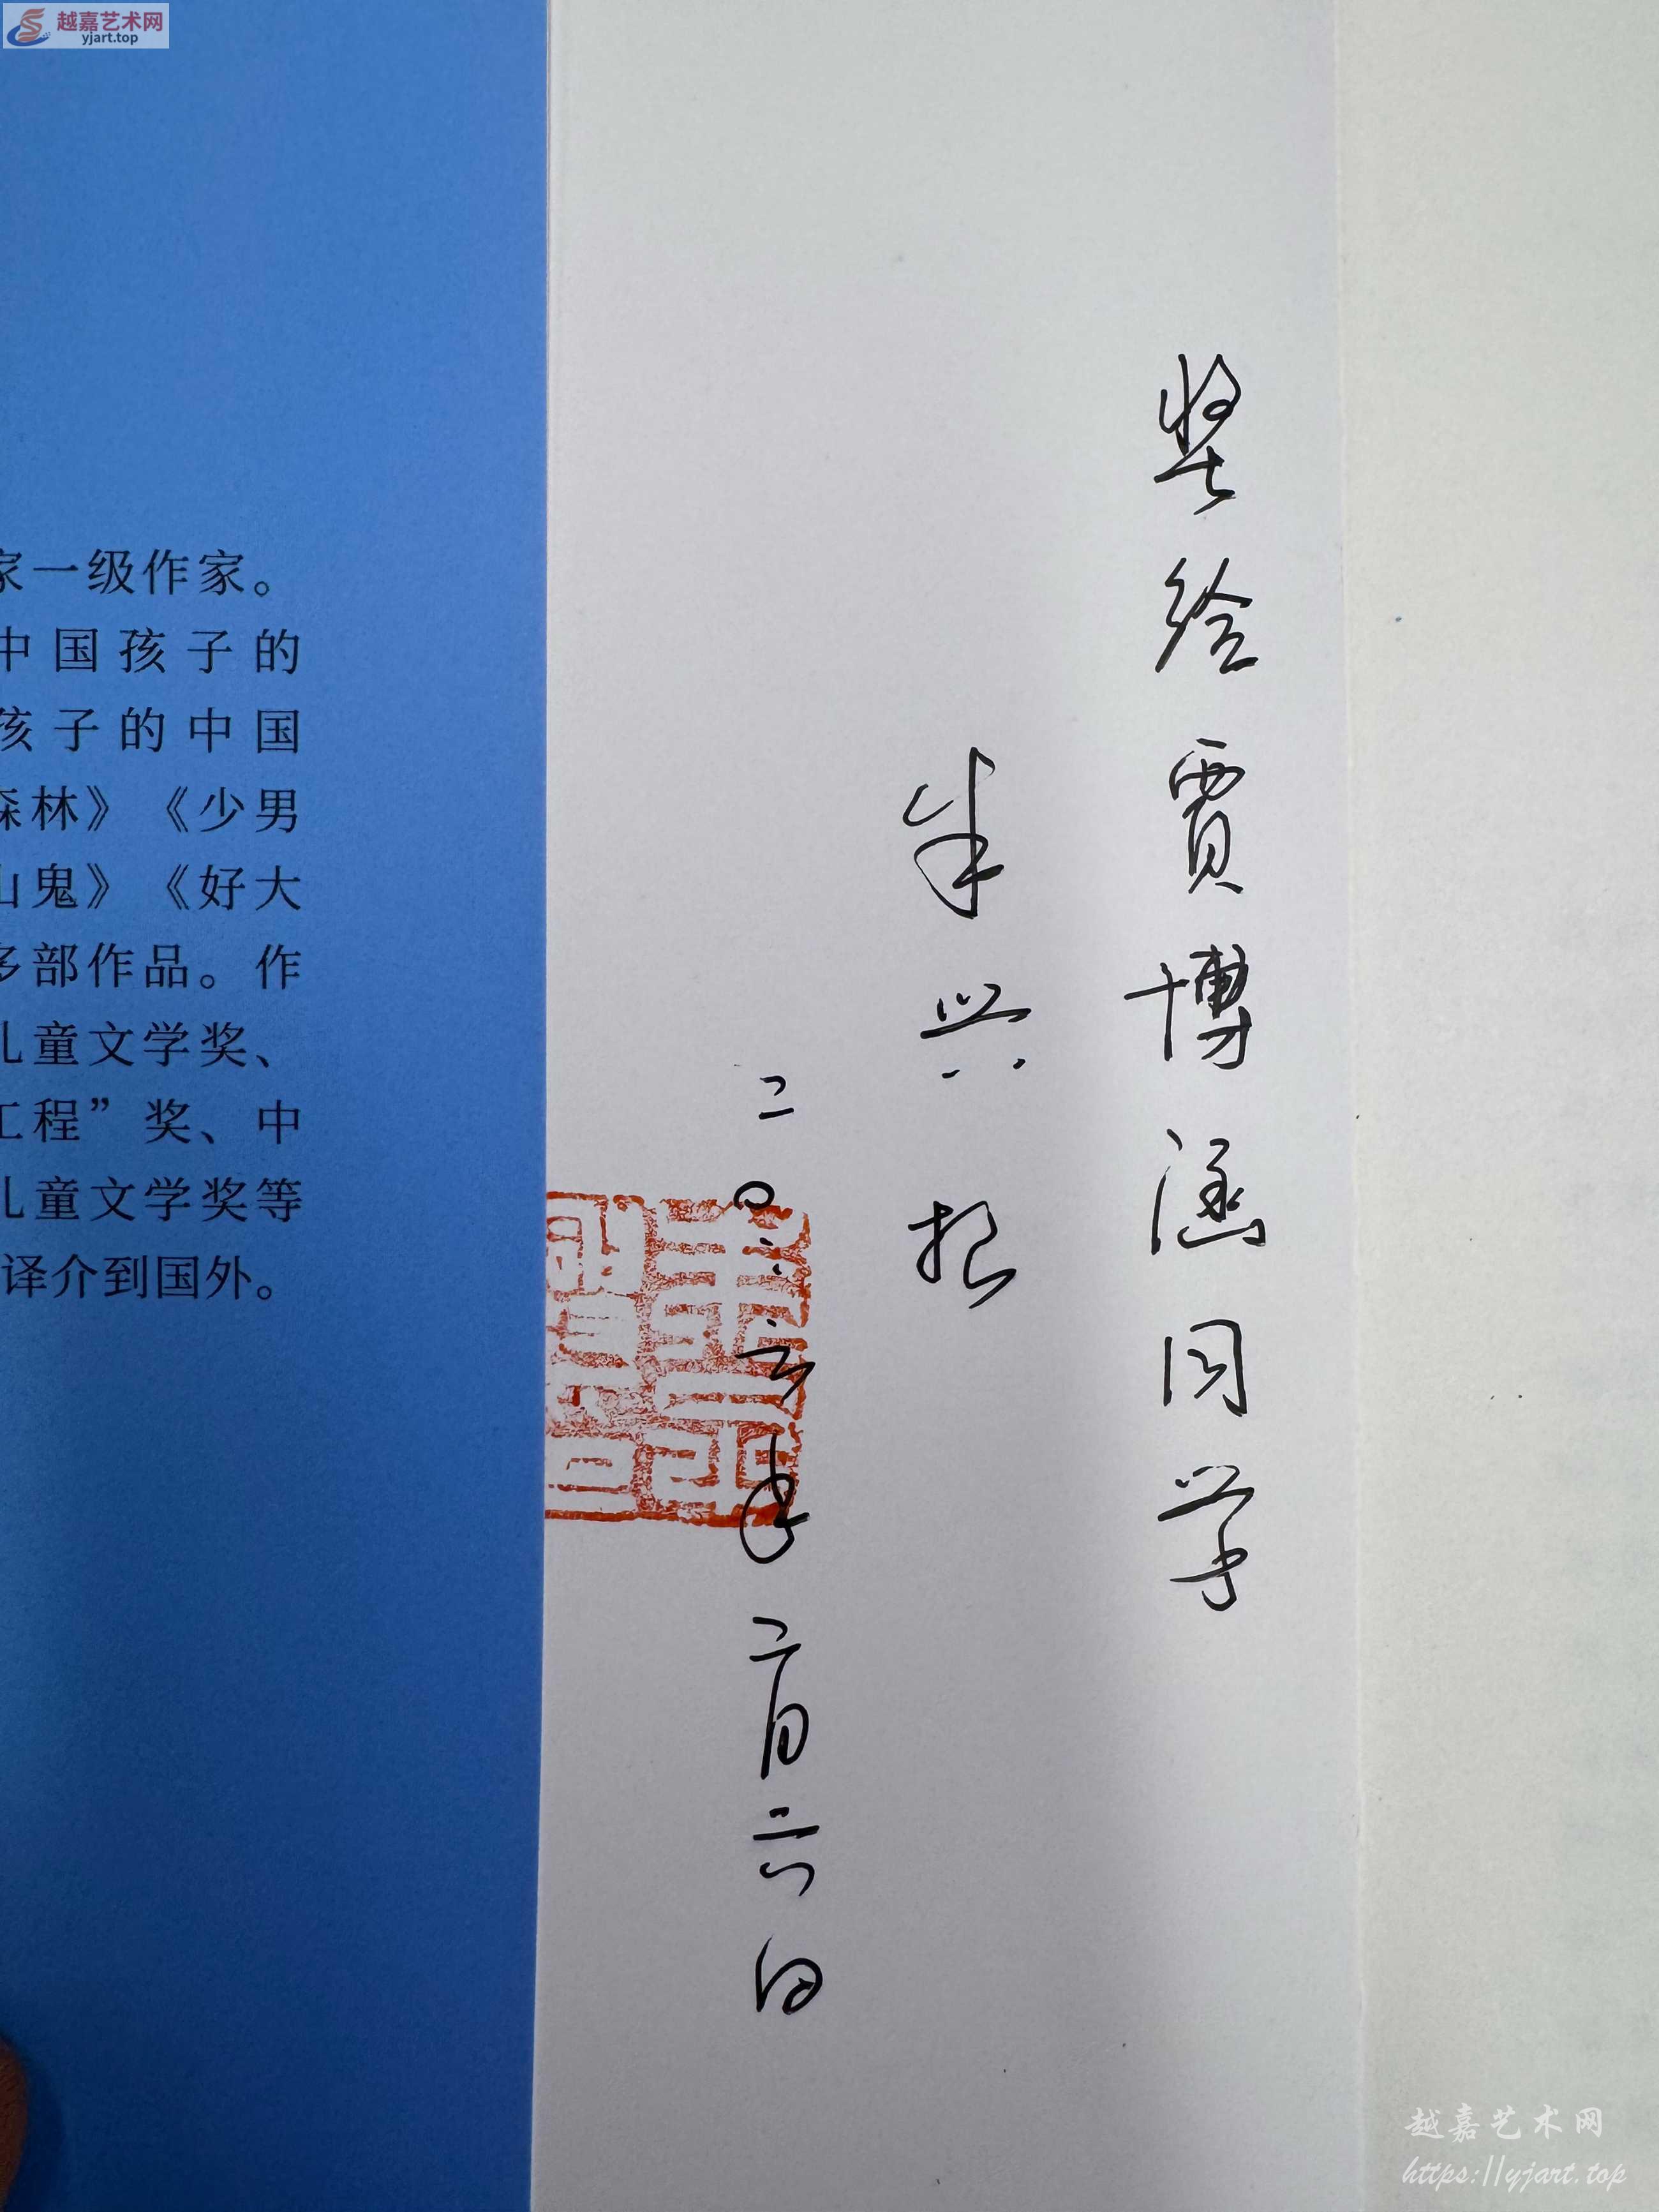 越嘉艺术网
yjart.top
家一级作家。
中国孩子的
孩子的中国
森林》《少男
山鬼》《好大
多部作品。作
儿童文学奖、
工程”奖、中
儿童文学奖等
译介到国外。
奖给贾博涵同学
朱兴振
二〇二三年二月六日
越嘉艺术网
https://yjart.top